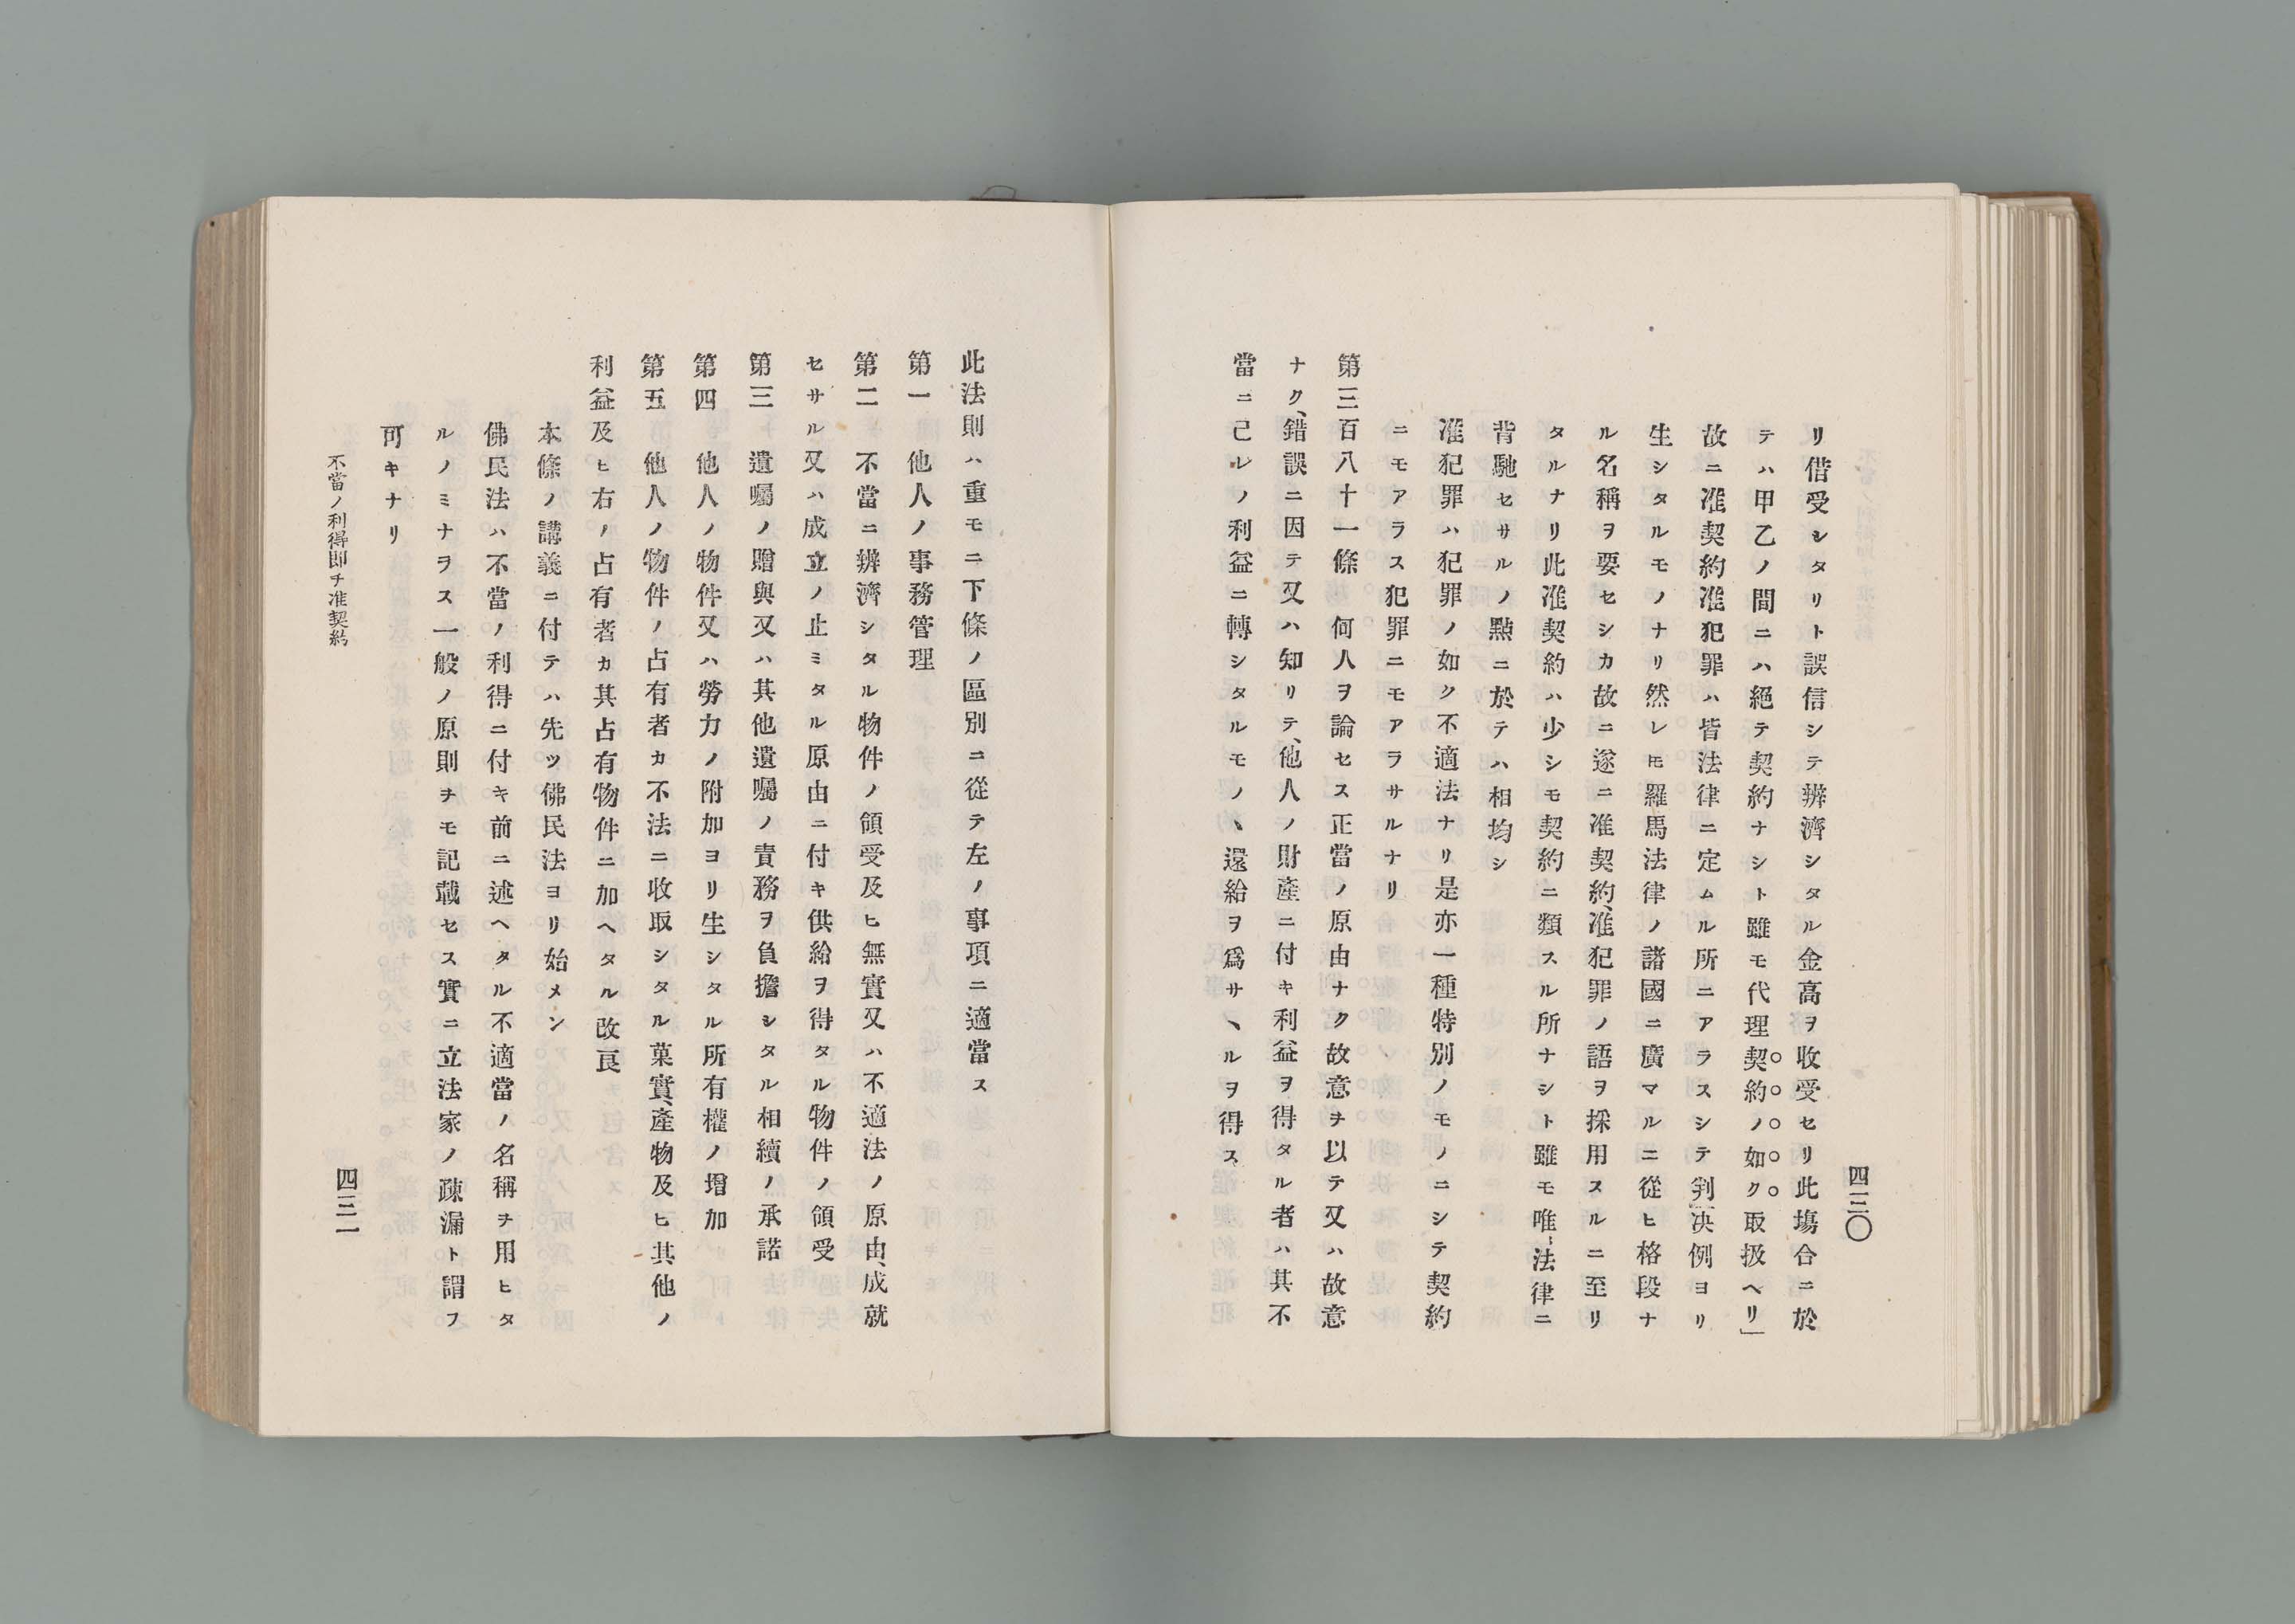 リ借受シタリト誤信シテ辨濟シタル金高ヲ收受セリ此塲合ニ於
テハ甲乙ノ間ニハ絕テ契約ナシト雖モ代理契約ノ如ク取扱ヘリ」
故ニ准契約准犯罪ハ皆法律ニ定ムル所ニアラスシテ判决例ヨリ
生シタルモノナリ然レ𪜈羅馬法律ノ諸國ニ廣マルニ從ヒ格段ナ
ル名稱ヲ要セシカ故ニ遂ニ准契約、准犯罪ノ語ヲ採用スルニ至リ
タルナリ此准契約ハ少シモ契約ニ類スル所ナシト雖モ唯法律ニ
背馳セサルノ㸃ニ於テハ相均シ
准犯罪ハ犯罪ノ如ク不適法ナリ是亦一種特別ノモノニシテ契約
ニモアラス犯罪ニモアラサルナリ
第三百八十一條　何人ヲ論セス正當ノ原由ナク故意ヲ以テ又ハ故意
ナク、錯誤ニ因テ又ハ知リテ、他人ノ財產ニ付キ利益ヲ得タル者ハ其不
當ニ己レノ利益ニ轉シタルモノヽ還給ヲ爲サヽルヲ得ス
四三〇
此法則ハ重モニ下條ノ區別ニ從テ左ノ事項ニ適當ス
第一　他人ノ事務管理
第二　不當ニ辨濟シタル物件ノ領受及ヒ無實又ハ不適法ノ原由、成就
セサル又ハ成立ノ止ミタル原由ニ付キ供給ヲ得タル物件ノ領受
第三　遺囑ノ贈與又ハ其他遺囑ノ責務ヲ負擔シタル相續ノ承諾
第四　他人ノ物件又ハ勞力ノ附加ヨリ生シタル所有權ノ增加
第五　他人ノ物件ノ占有者カ不法ニ收取シタル菓實、產物及ヒ其他ノ
利益及ヒ右ノ占有者カ其占有物件ニ加ヘタル改良
本條ノ講義ニ付テハ先ツ佛民法ヨリ始メン
佛民法ハ不當ノ利得ニ付キ前ニ述ヘタル不適當ノ名稱ヲ用ヒタ
ルノミナラス一般ノ原則ヲモ記載セス實ニ立法家ノ疎漏ト謂フ
可キナリ
不當ノ利得即チ准契約
四三一